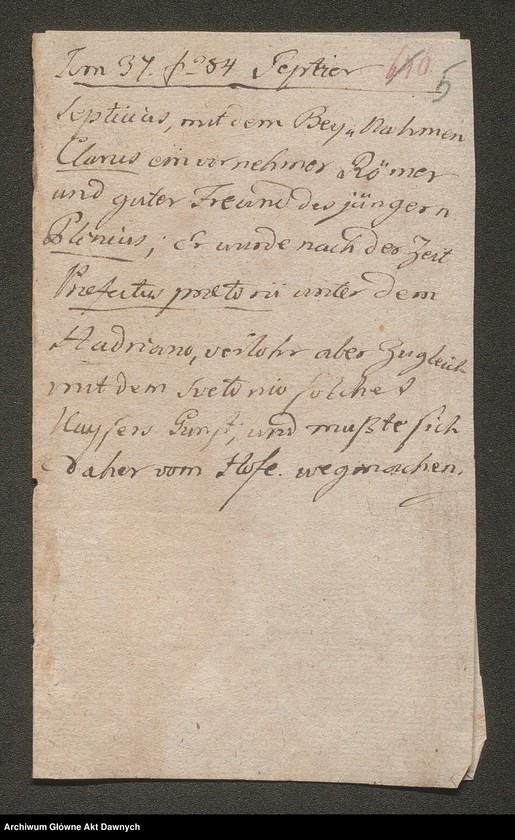 Tom 37. fo 84 Septier 610. 5
Septicius, mit dem Bey„Nahmen
Clarus ein vornehmer Römer
und guter Freund des jüngern
Plinius; Er wurde nach der Zeit
Præfectus prætorii unter dem
Hadriano, verlohr aber zugleich
mit dem Svetonio solches
Kaysers Gunst, und mußte sich
daher vom Hofe wegmachen.
Archiwum Główne Akt Dawnych